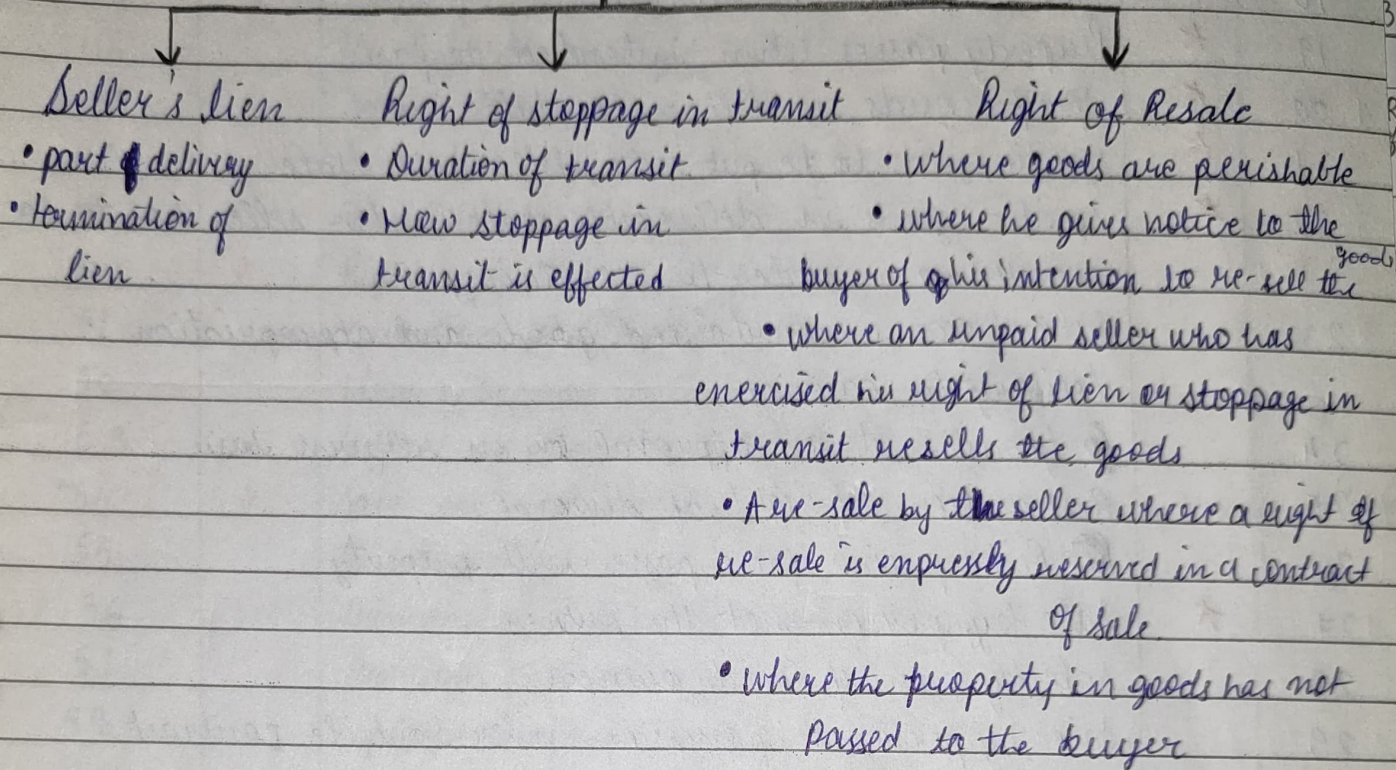 Seller's lien
• part delivery
• termination of
lien
Right of stoppage in transit
• Duration of transit
• How stoppage in
transit is effected
Right of Resale
• where goods are perishable
• where he gives notice to the
buyer of his intention to re-sell the goods
• where an unpaid seller who has
exercised his right of lien or stoppage in
transit resells the goods
• A re-sale by the seller where a right of
re-sale is expressly reserved in a contract
of sale
• where the property in goods has not
passed to the buyer